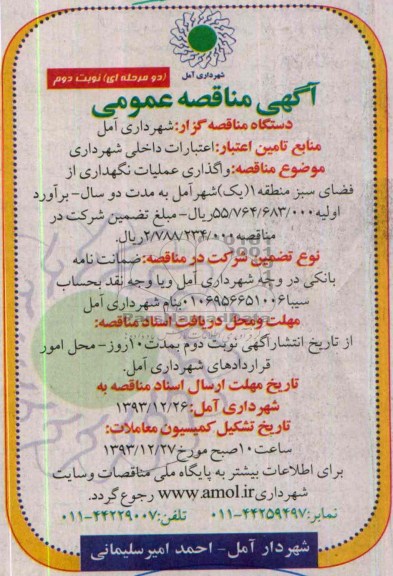 شهرداری آمل
(دو مرحله ای) نوبت دوم
آگهی مناقصه عمومی
دستگاه مناقصه گزار: شهرداری آمل
منابع تامین اعتبار: اعتبارات داخلی شهرداری
موضوع مناقصه: واگذاری عملیات نگهداری از
فضای سبز منطقه ۱(یک) شهر آمل به مدت دو سال- برآورد
اولیه ۵۵/۷۶۴/۶۸۳/۰۰۰ ریال- مبلغ تضمین شرکت در
مناقصه ۲/۷۸۸/۲۳۴/۰۰۰ ریال.
نوع تضمین شرکت در مناقصه: ضمانت نامه
بانکی در وجه شهرداری آمل ویا وجه نقد بحساب
سیبا ۰۱۰۶۹۵۶۶۵۱۰۰۶ بنام شهرداری آمل
مهلت ومحل دریافت اسناد مناقصه:
از تاریخ انتشار آگهی نوبت دوم بمدت ۱۰ روز- محل امور
قراردادهای شهرداری آمل.
تاریخ مهلت ارسال اسناد مناقصه به
شهرداری آمل: ۱۳۹۳/۱۲/۲۶
تاریخ تشکیل کمیسیون معاملات:
ساعت ۱۰ صبح مورخ ۱۳۹۳/۱۲/۲۷
برای اطلاعات بیشتر به پایگاه ملی مناقصات و سایت
شهرداری www.amol.ir رجوع گردد.
نمابر: ۴۴۲۵۹۴۹۷-۰۱۱ تلفن: ۴۴۲۲۹۰۰۷-۰۱۱
شهردار آمل - احمد امیرسلیمانی